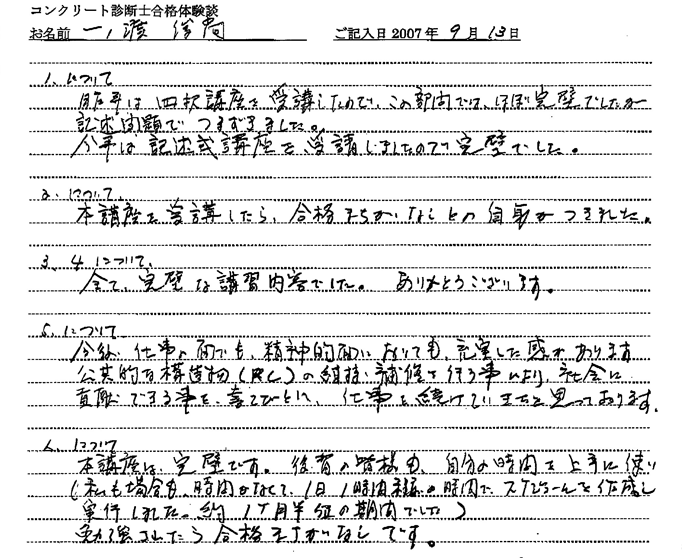 コンクリート診断士合格体験談
お名前 ご記入日 2007年 9月 13日
1. について
昨年は四択講座を受講したので、この部向では、ほぼ完壁でしたが
記述問題でつまずきました。
今年は記述式講座を受講しましたので完壁でした。
2. について
本講座を受講したら、合格まちがいなしとの自身がつきました。
3. 4. について、
全て、完壁な講習内容でした。 ありがとうございます。
5. について
今後、仕事の面でも、精神的面においても、充実した感があります
公共的な構造物(RC)の維持、補修を行う事により、社会に
貢献できる事を、喜びとし、仕事を続けていきたと思っております。
について
本講座は、完壁です。後輩の皆様も、自分の時間を上手に使い
(私も場合も、時間がなくて、1日1時間程の時間で、スケジュールを作成し
実行しました。約1ヶ月半位の期間でした)
勉強したら合格まちがいなしです。